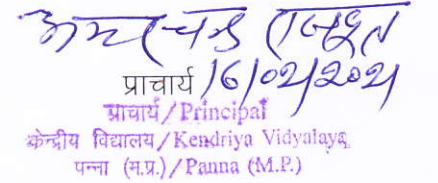 अमर चन्द्र राजपूत
प्राचार्य 16/02/2021
प्राचार्य / Principal
केन्द्रीय विद्यालय / Kendriya Vidyalaya
पन्ना (म.प्र.) / Panna (M.P.)